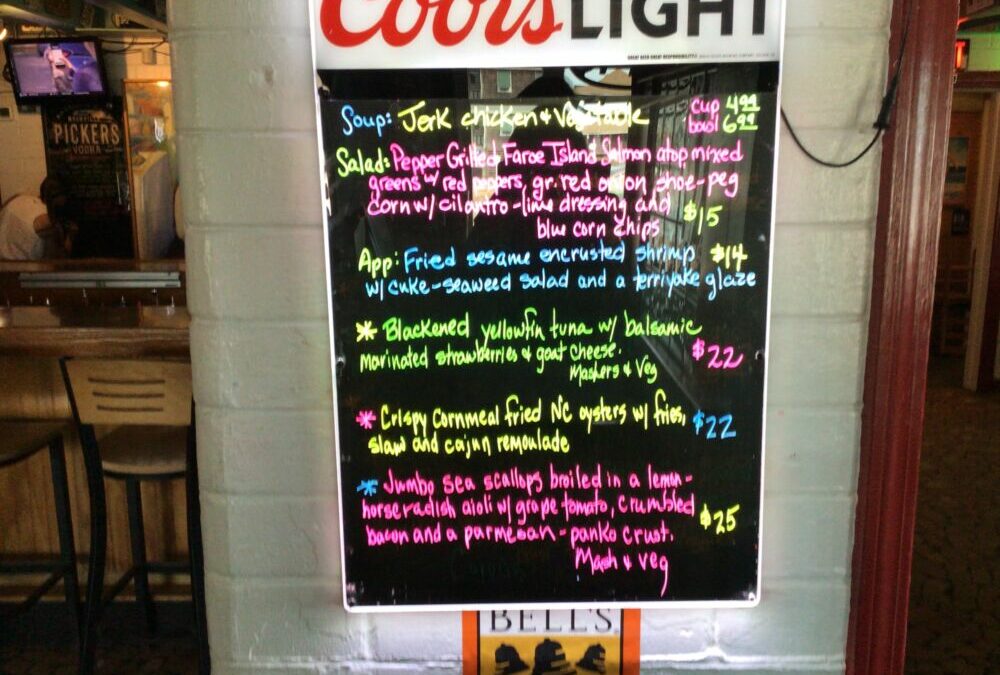 Coors LIGHT
PICKERS
VODKA
Soup: Jerk chicken & Vegetable cup 4.99
bowl 6.99
Salad: Pepper Grilled Faroe Island Salmon atop mixed
greens w/ red peppers, gr. red onion shoe-peg
corn w/ cilantro-lime dressing and $15
blue corn chips
App: Fried sesame encrusted shrimp $14
w/ cuke-seaweed salad and a terriyake glaze
* Blackened yellowfin tuna w/ balsamic
marinated strawberries & goat cheese. $22
Mashers & Veg
* Crispy Cornmeal fried NC oysters w/ fries, $22
slaw and cajun remoulade
* Jumbo sea scallops broiled in a lemon-
horseradish aioli w/ grape tomato, crumbled $25
bacon and a parmesan-panko crust.
Mash & veg
BELL'S